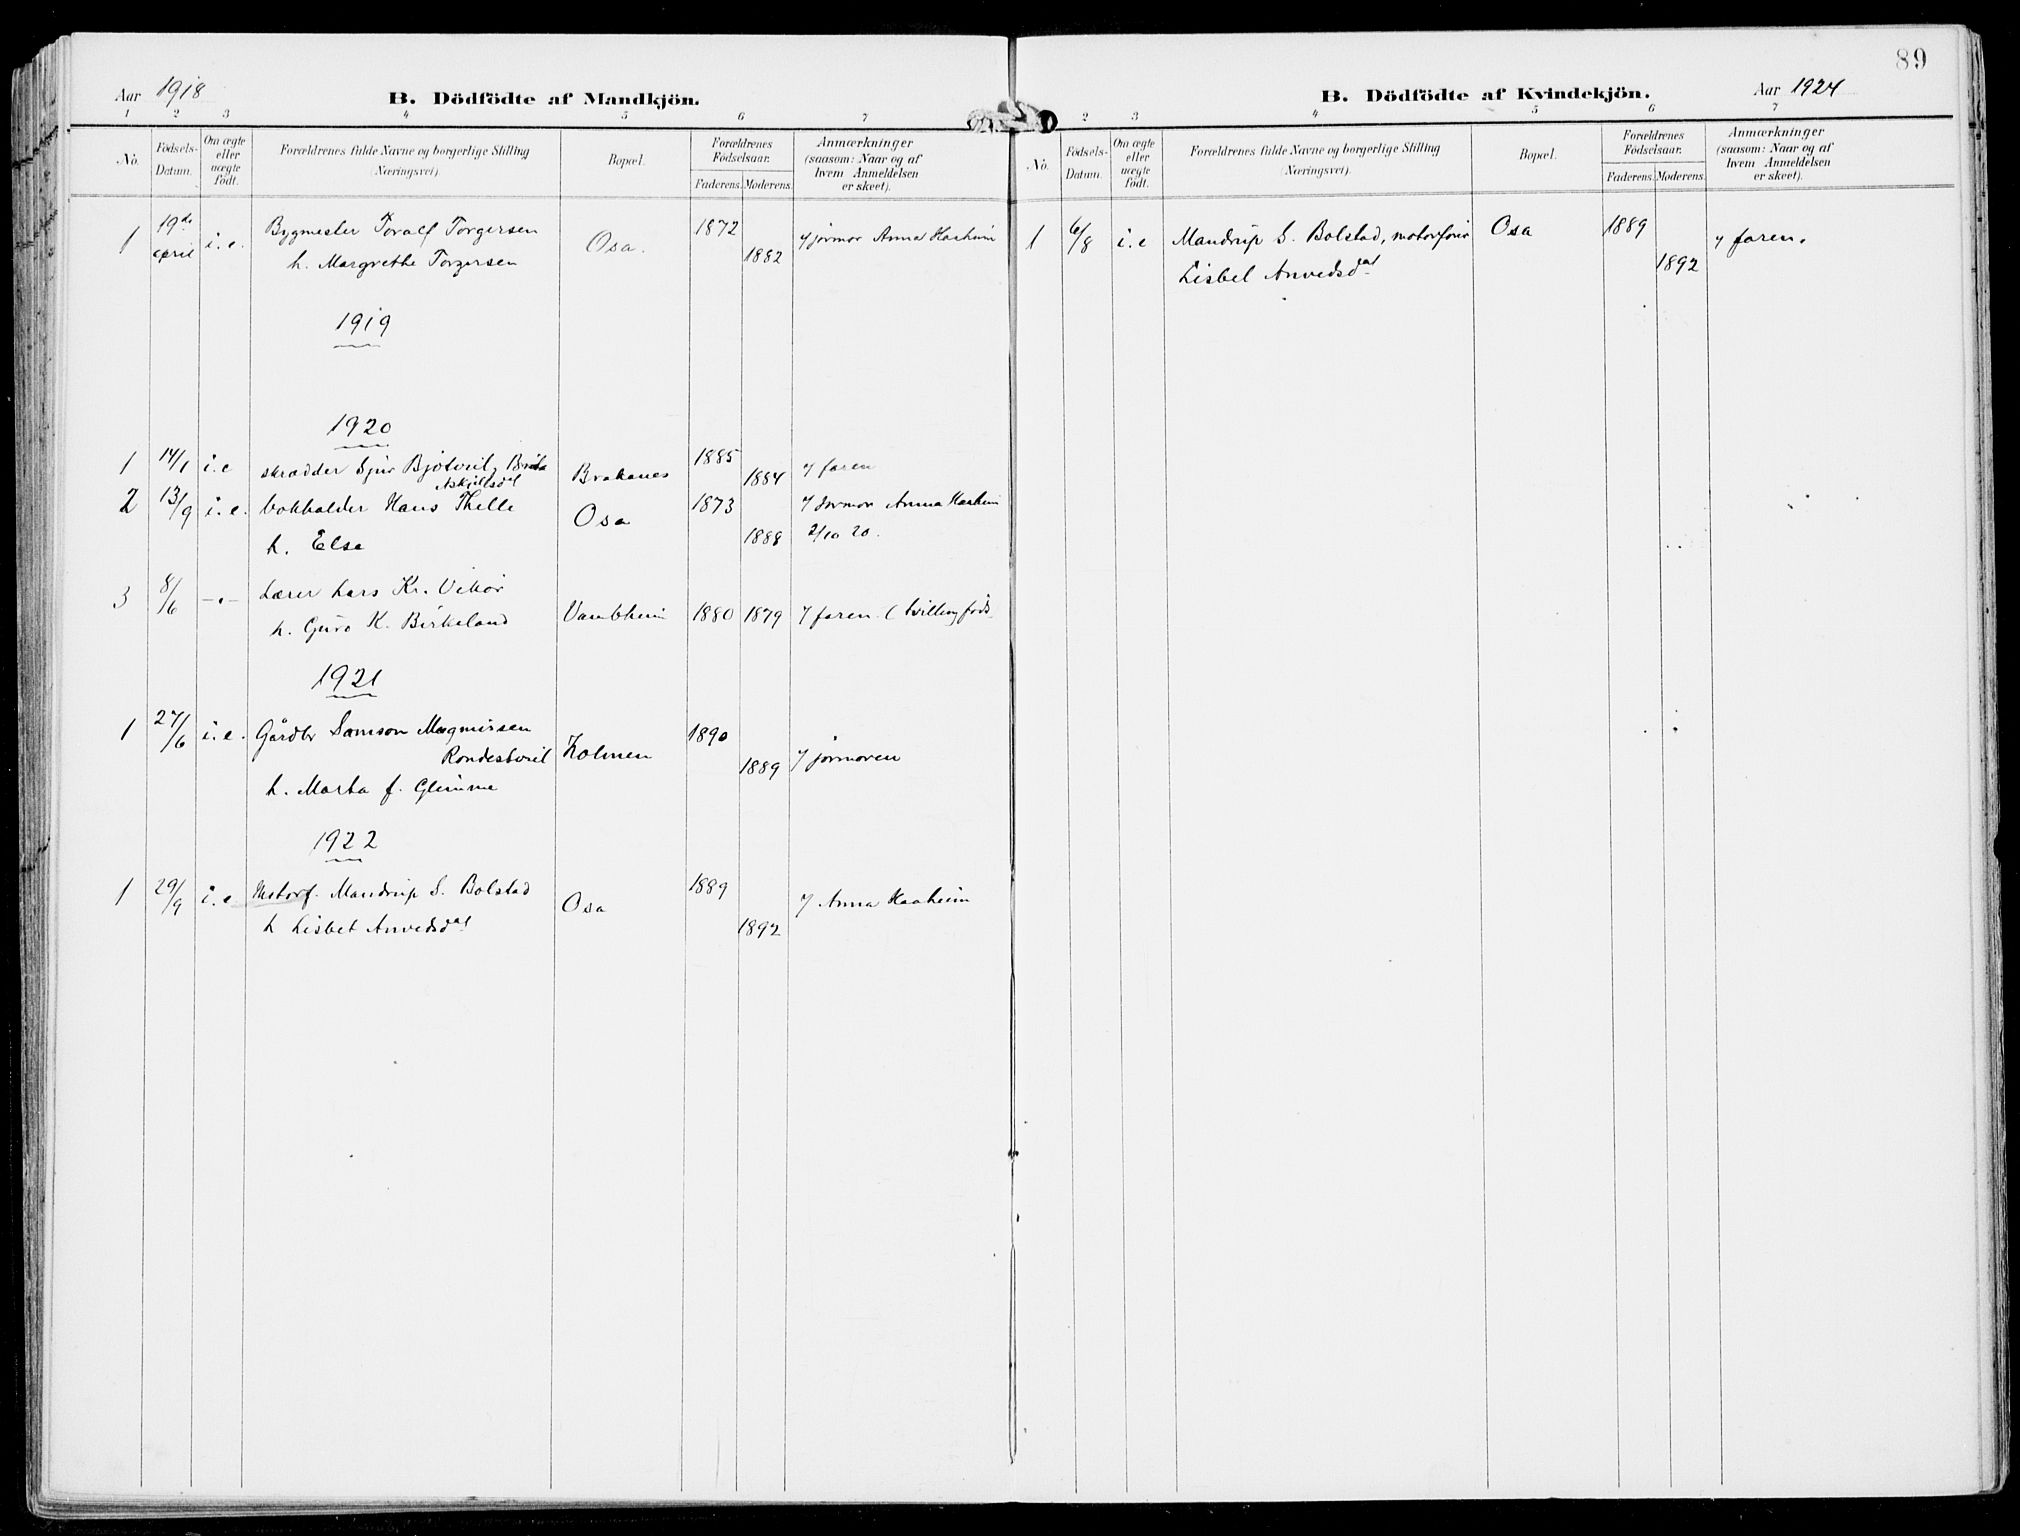 Aar 1918
B. Dödfödte af Mandkjön.
1 2 3 4 5 6 7
No. Födsels-Datum. Om ægte eller uægte födt. Forældrenes fulde Navne og borgerlige Stilling (Næringsvei). Bopæl. Forældrenes Födselsaar. Faderens. Moderens. Anmærkninger (saasom: Naar og af hvem Anmeldelsen er skeet).
1 19de april i. e. Bygmester Toralf Torgersen Osa. 1872 1882 jormor Anna Haaheim
h. Margrethe Torgersen
1919
1920
1 14/1 i. e skrædder Sjur Bjotveit, Brita Askjellsdt Brakanes 1885 1884 faren
2 13/9 i. e. bokholder Hans Thelle Osa 1873 1888 Jormor Anna Haaheim
h. Else 2/10 20.
3 8/6 —„— Lærer Lars Kr. Vikør
h. Guro K. Birkeland 1880 1879 faren (tvillingføds.
1921
1 27/6 i. e. Gårdbr Samson Magnussen
Rondestveit Holmen 1890 1889 jormoren
h. Marta f. Glimme
1922
1 29/9 i. e Motorf. Mandrup S. Bolstad Osa 1889 1892 Anna Haaheim
h Lisbet Anvedsdat
89
Aar 1924
B. Dödfödte af Kvindekjön.
2 3 4 5 6 7
No. Födsels-Datum. Om ægte eller uægte födt. Forældrenes fulde Navne og borgerlige Stilling (Næringsvei). Bopæl. Forældrenes Födselsaar. Faderens. Moderens. Anmærkninger (saasom: Naar og af hvem Anmeldelsen er skeet).
1 6/8 i. e Mandrup S. Bolstad, motorfører Osa 1889 1892 faren.
Lisbet Anvedsdat